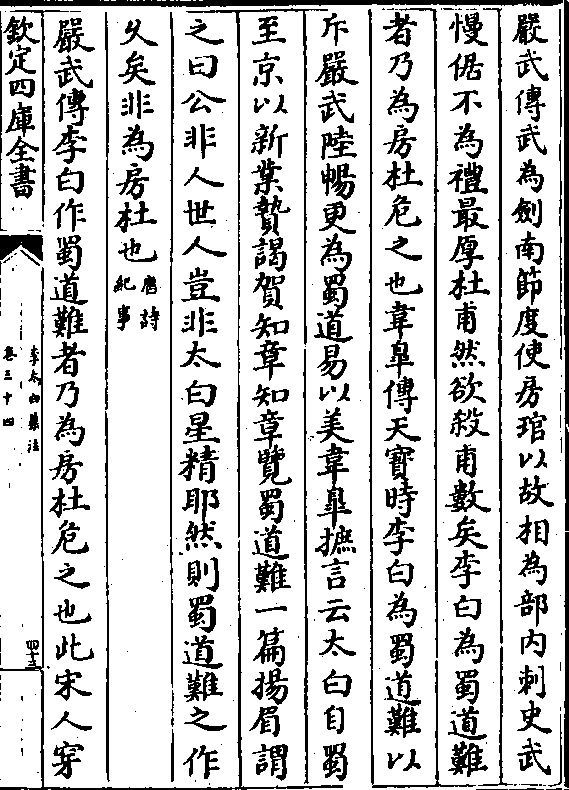 嚴武傳武為劍南節度使房琯以故相為部内刺史武
慢倨不為禮最厚杜甫然欲殺甫數矣李白為蜀道難
者乃為房杜危之也韋臯傳天寶時李白為蜀道難以
斥嚴武陸暢更為蜀道易以美韋臯摭言云太白自蜀
至京以新業贄謁賀知章知章覽蜀道難一篇揚眉謂
之曰公非人世人豈非太白星精耶然則蜀道難之作
久矣非為房杜也唐詩
紀事
嚴武傳李白作蜀道難者乃為房杜危之也此宋人穿
欽定四庫全書
李太白集注
卷三十四
四十三